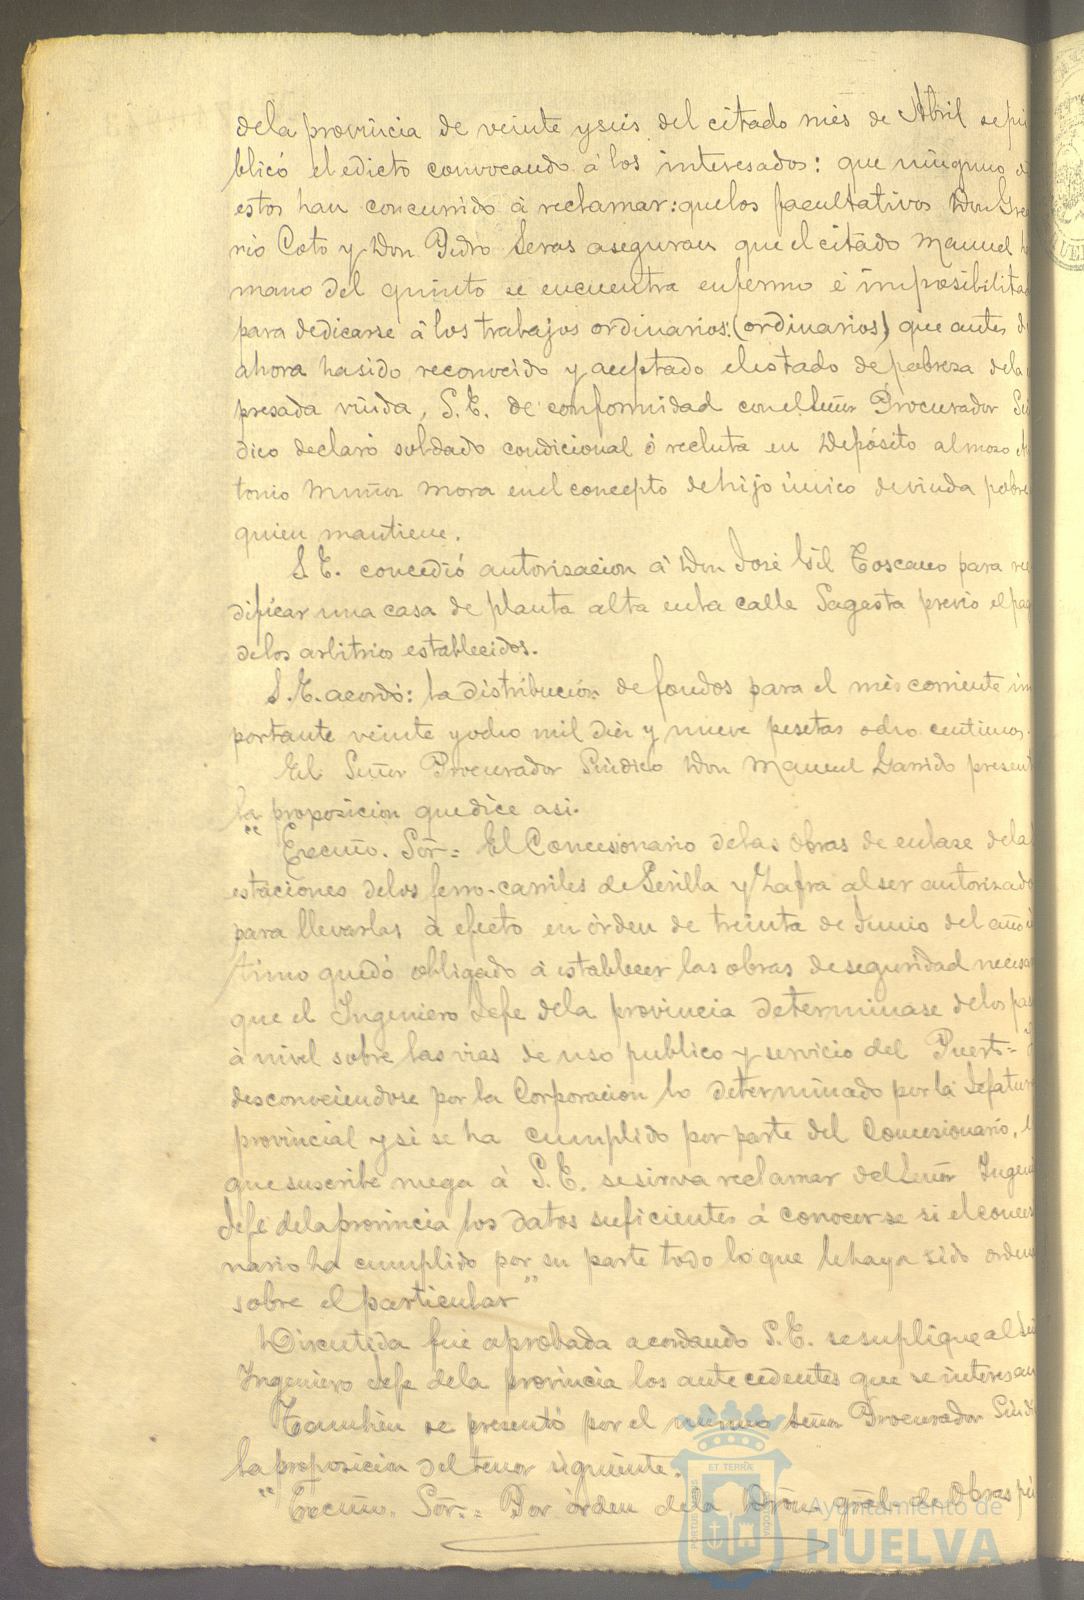 dela provincia de veinte y seis del citado mes de Abril se pu
blicó el edicto convocando á los interesados: que ninguno d
estos han concurrido á reclamar: que los facultativos Don Gre
rio Coto y Don Pedro Seras aseguran que el citado Manuel h
mano del quinto se encuentra enfermo é imposibilitad
para dedicarse á los trabajos ordinarios: (ordinarios) que antes d
ahora ha sido reconocido y aceptado el estado de pobreza dela
presada viuda, S.E. de conformidad con el Señor Procurador Sin
dico declaró soldado condicional ó recluta en Depósito al mozo An
tonio Muñoz Mora en el concepto de hijo único de viuda pobre
quien mantiene.
S.E. concedió autorizacion á Don José Gil Toscano para ree
dificar una casa de planta alta en la calle Sagasta previo el pag
de los arbitrios establecidos.
S.E. acordó: la distribución de fondos para el mes corriente im
portante veinte y ocho mil diez y nueve pesetas ocho centimos.
El Señor Procurador Sindico Don Manuel Garrido present
la proposicion que dice asi.
"Excmo. Sor.= El Concesionario de las obras de enlace dela
estaciones de los ferro-carriles de Sevilla y Zafra al ser autorizado
para llevarlas á efecto en órden de treinta de Junio del año úl
timo quedó obligado á establecer las obras de seguridad necesa
que el Ingeniero Jefe dela provincia determinase de los pas
á nivel sobre las vias de uso publico y servicio del Puert=
desconociendose por la Corporacion lo determinado por la Jefatur
provincial y si se ha cumplido por parte del Concesionario, l
que suscribe ruega á S.E. se sirva reclamar del Señor Ingeni
Jefe dela provincia los datos suficientes á conocerse si el conces
nario ha cumplido por su parte todo lo que le haya sido orden
sobre el particular"
Discutida fué aprobada acordando S.E. se suplique al Señ
Ingeniero Jefe dela provincia los antecedentes que se interesan
Tambien se presentó por el mismo Señor Procurador Sindi
la proposicion del tenor siguiente.
"Excmo. Sor.= Por órden dela Dirón. gral. de Obras pú
ET TERRÆ
PORTUS MARIS
CUSTODIA
Ayuntamiento de
HUELVA